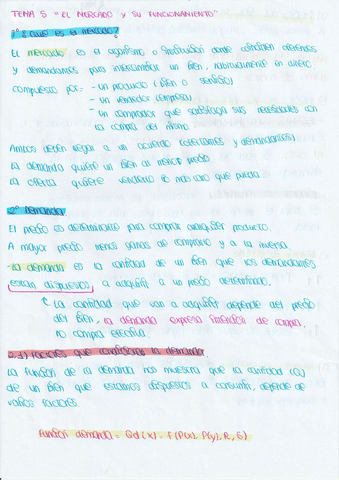 TEMA 5 "EL MERCADO y SU FUNCIONAMIENTO"
1º ¿Qué es el mercado?
El mercado es el organismo o institución donde coinciden oferentes
y demandantes para intercambiar un bien, habitualmente en dinero
compuesto por: - un producto (bien o servicio)
- un vendedor (empresa)
- un comprador que satisfaga sus necesidades con
la compra del mismo
Ambos deben llegar a un acuerdo (ofertantes y demandantes).
La demanda quiere un bien al menor precio
La oferta quiere venderlo lo más caro que pueda.
2º Demanda
El precio es determinante para comprar cualquier producto.
A mayor precio menos ganas de comprarlo y a la inversa
- La demanda es la cantidad de un bien que los demandantes
están dispuestos, a adquirir a un precio determinado.
La cantidad que van a adquirir depende del precio
del bien, la demanda expresa intención de compra,
no compra efectiva.
2.1) Factores que condicionan la demanda.
La función de la demanda nos muestra que la cantidad (Q)
de un bien que estamos dispuestos a consumir, depende de
varios factores.
Función demanda = Qd (x) = f (P(x), P(y), R, G)